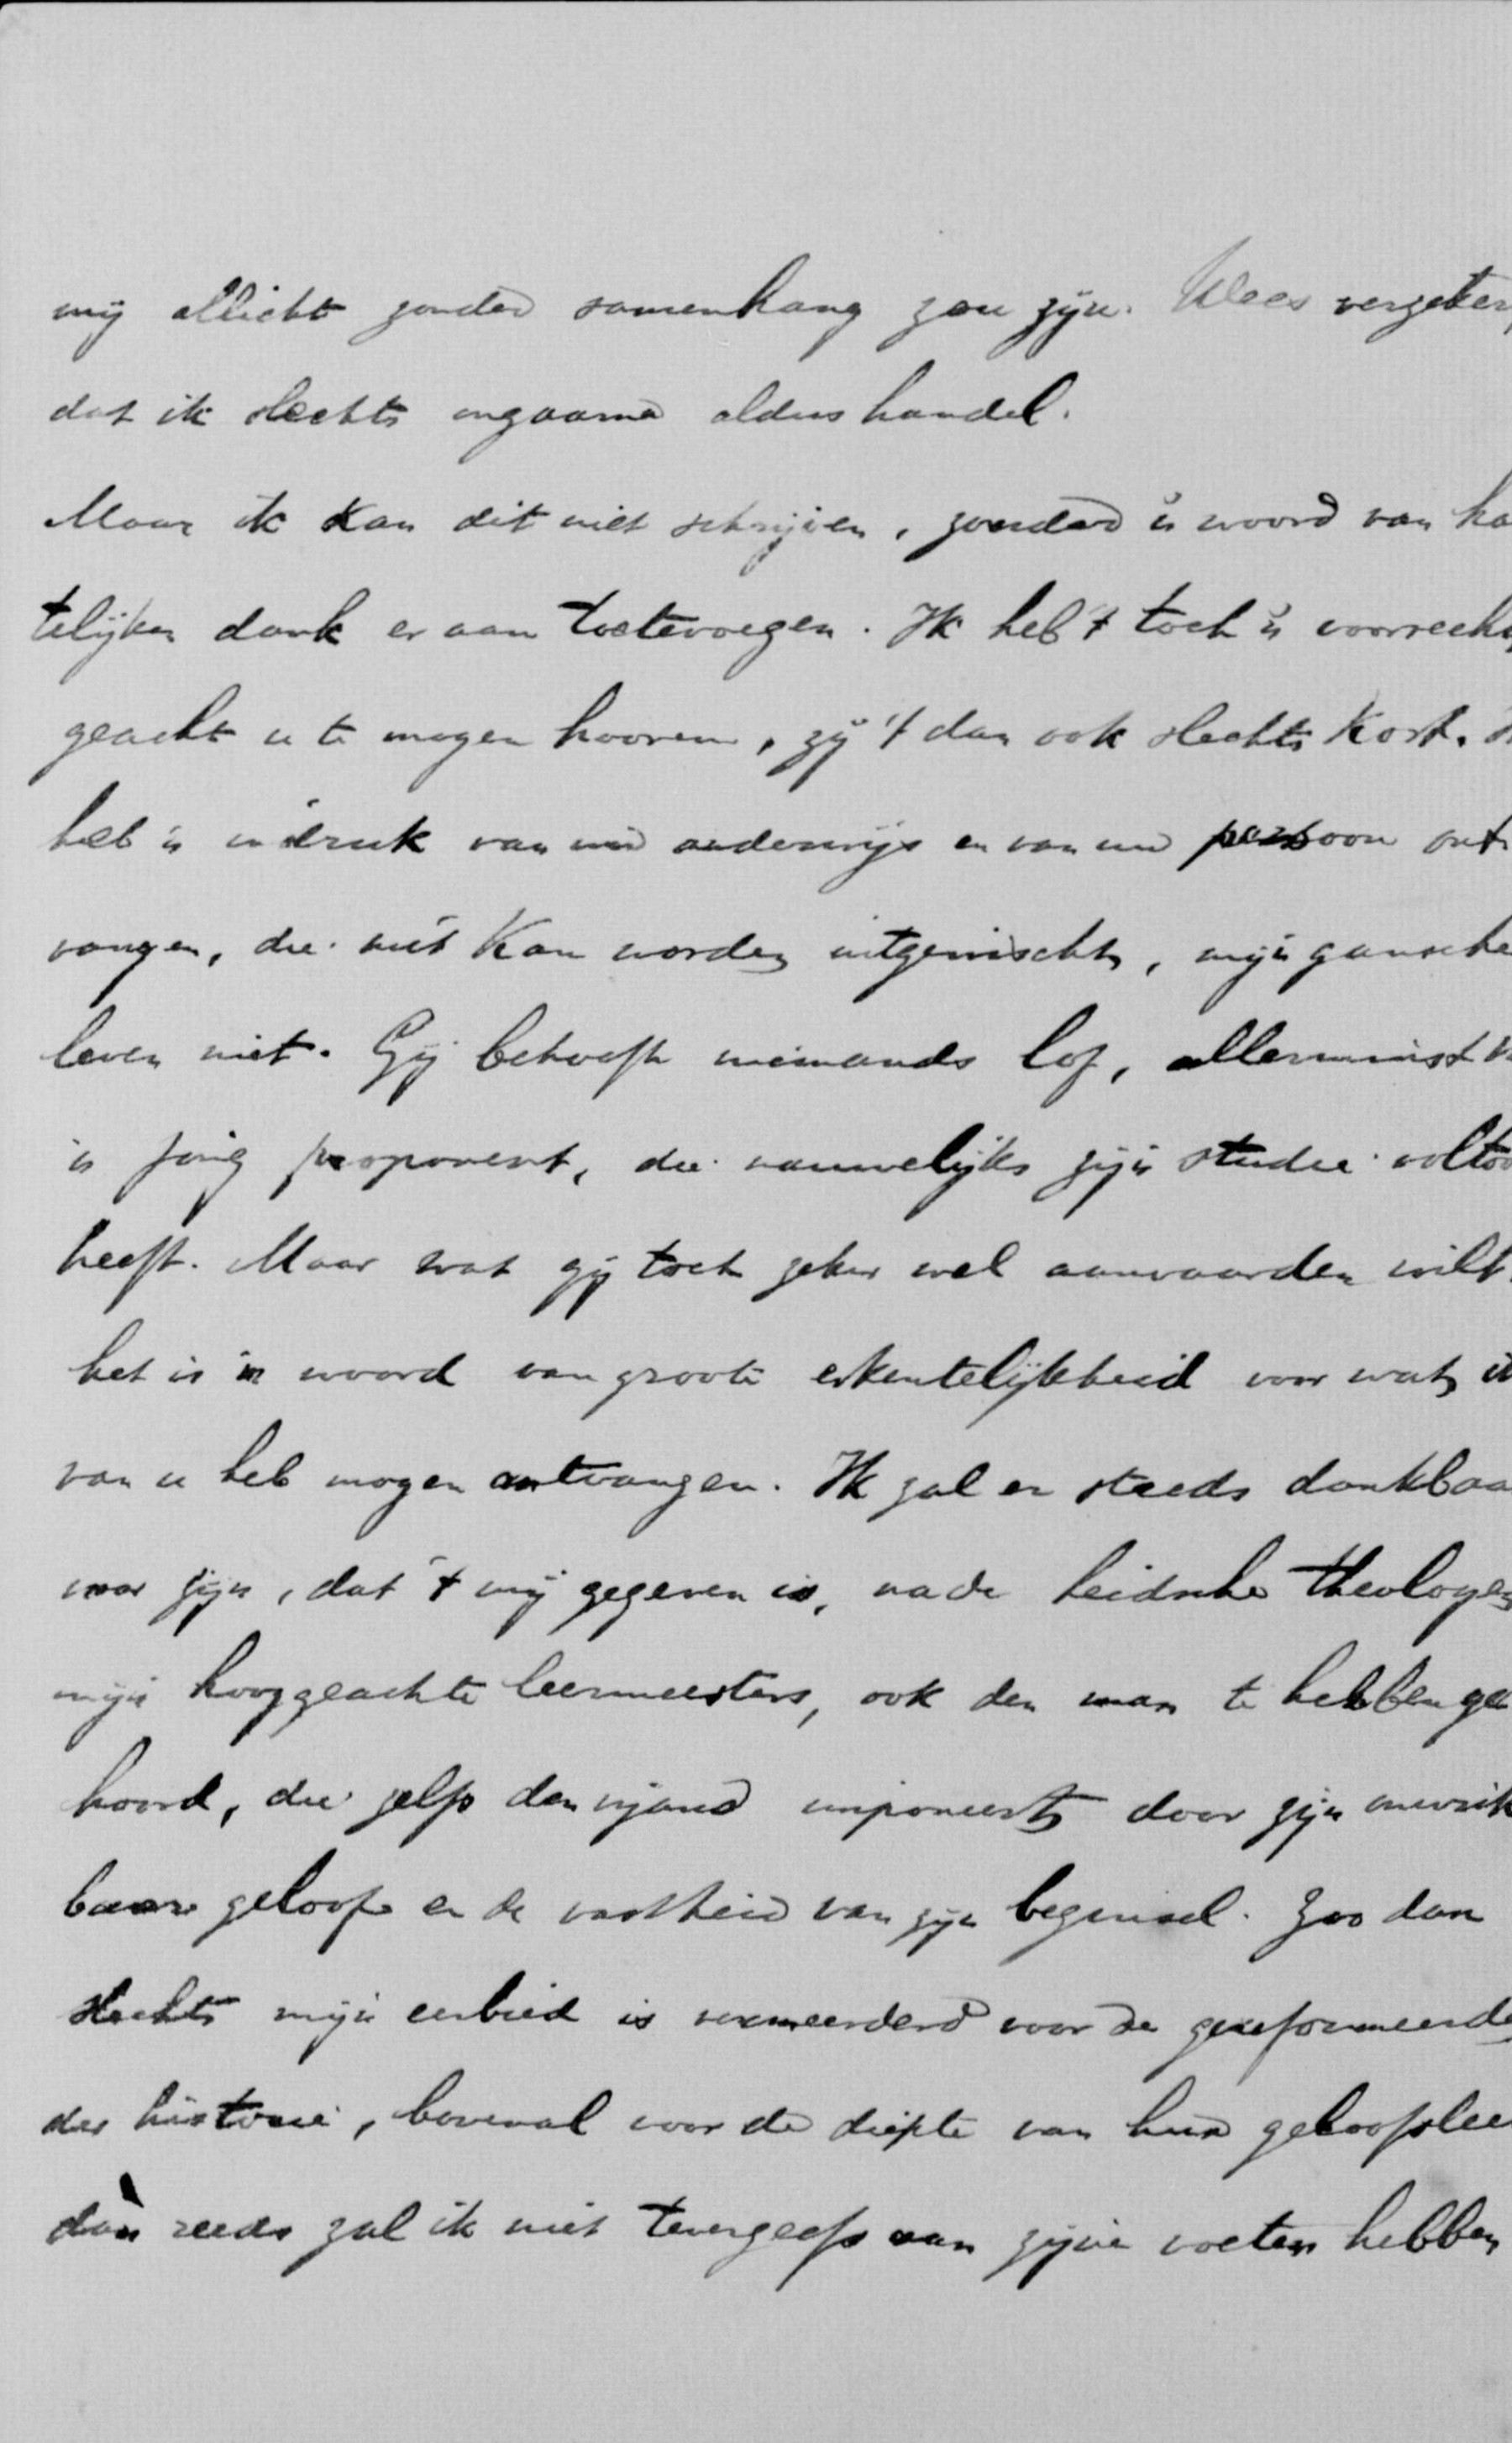 mij allicht zonder samenhang zou zijn. Wees verzeker
dat ik slechts ongaarne aldus handel.
Maar ik kan dit niet schrijven, zonder 'n woord van ha
telijken dank er aan toetevoegen. Ik heb 't toch 'n voorrecht
geacht u te mogen hooren, zij 't dan ook slechts kort.
heb 'n indruk van uw onderwijs en van uw persoon ont
vangen, die niet kan worden uitgewischt, mijn gansche
leven niet. Gij behoeft niemands lof, allerminst v
'n jong proponent, die nauwelijks zijn studie voltoo
heeft. Maar wat gij toch zeker wel aanvaarden wilt,
het is 'n woord van groote erkentelijkheid voor wat ik
van u heb mogen ontvangen. Ik zal er steeds dankbaa
voor zijn, dat 't mij gegeven is, na de Leidsche theologen
mijn hooggeachte leermeesters, ook den man te hebben ge
hoord, die zelfs den vijand imponeert door zijn onwrik
baar geloof en de vastheid van zijn beginsel. Zoo dan
slechts mijn eerbied is vermeerderd voor de gereformeerde
der historie, bovenal voor de diepte van hun geloofslee
dàn reeds zal ik niet tevergeefs aan zijne voeten hebben